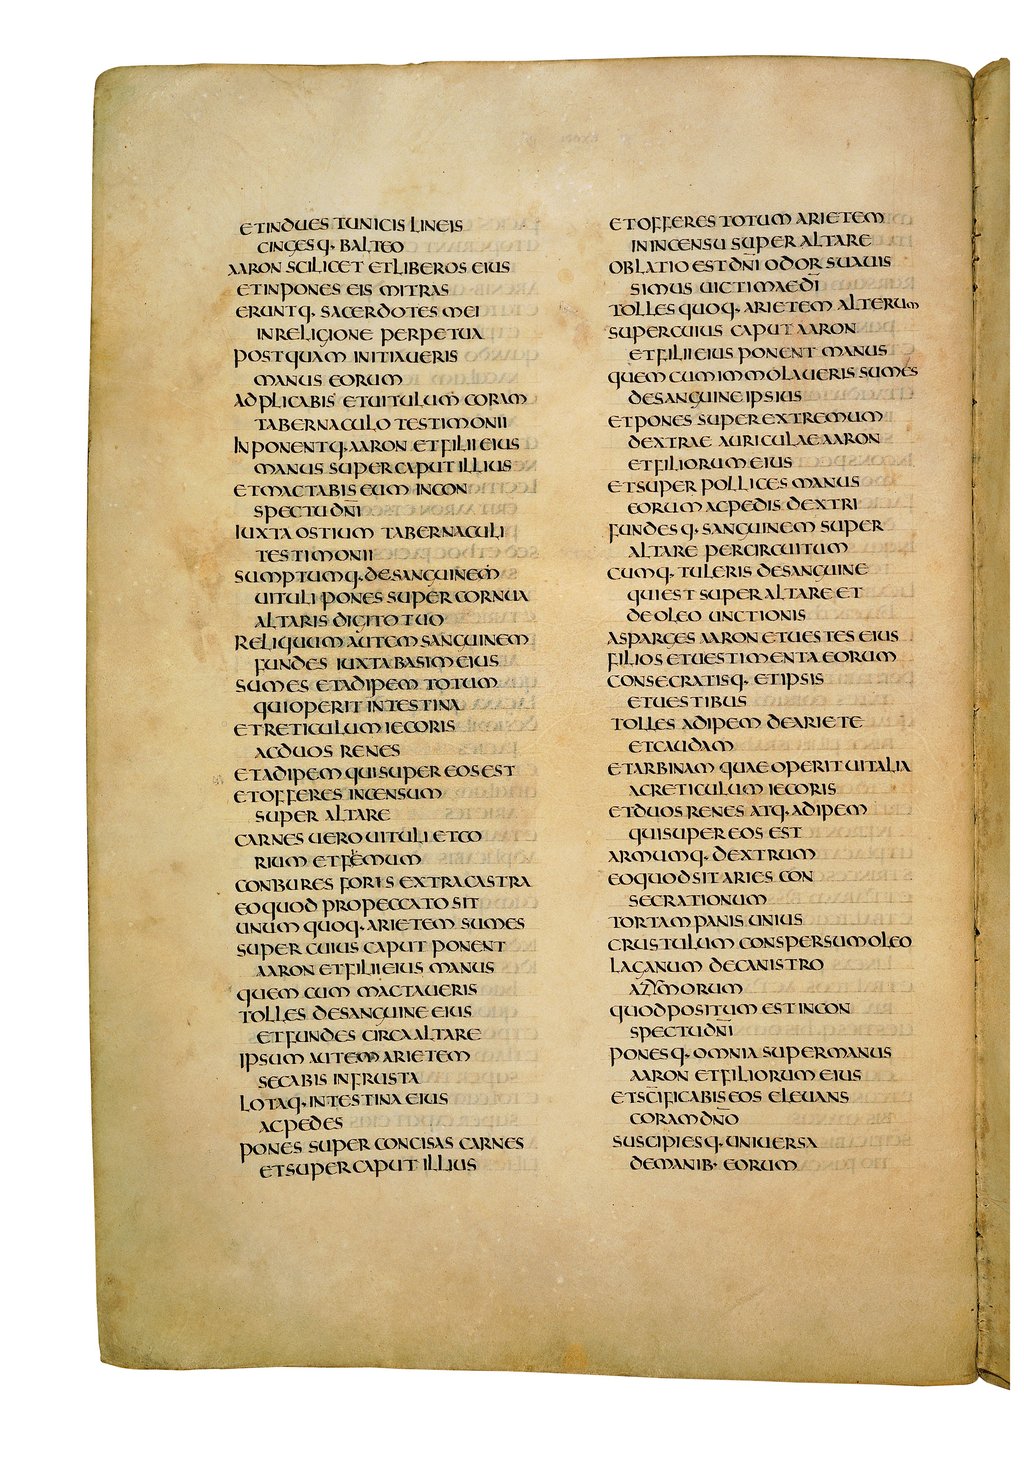 ETINDUES TUNICIS LINEIS
CINGESQ· BALTEO
AARON SCILICET ET LIBEROS EIUS
ET INPONES EIS MITRAS
ERUNTQ· SACERDOTES MEI
IN RELIGIONE PERPETUA
POSTQUAM INITIAUERIS
MANUS EORUM
ADPLICABIS ET UITULUM CORAM
TABERNACULO TESTIMONII
INPONENTQ· AARON ET FILII EIUS
MANUS SUPER CAPUT ILLIUS
ET MACTABIS EUM IN CON
SPECTU DN̄I
IUXTA OSTIUM TABERNACULI
TESTIMONII
SUMPTUMQ· DE SANGUINEM
UITULI PONES SUPER CORNUA
ALTARIS DIGITO TUO
RELIQUUM AUTEM SANGUINEM
FUNDES IUXTA BASIM EIUS
SUMES ET ADIPEM TOTUM
QUI OPERIT INTESTINA
ET RETICULUM IECORIS
AC DUOS RENES
ET ADIPEM QUI SUPER EOS EST
ET OFFERES INCENSUM
SUPER ALTARE
CARNES UERO UITULI ET CO
RIUM ET FEMUM
CONBURES FORIS EXTRA CASTRA
EO QUOD PRO PECCATO SIT
UNUM QUOQ· ARIETEM SUMES
SUPER CUIUS CAPUT PONENT
AARON ET FILII EIUS MANUS
QUEM CUM MACTAUERIS
TOLLES DE SANGUINE EIUS
ET FUNDES CIRCA ALTARE
IPSUM AUTEM ARIETEM
SECABIS IN FRUSTA
LOTAQ· INTESTINA EIUS
AC PEDES
PONES SUPER CONCISAS CARNES
ET SUPER CAPUT ILLIUS
ET OFFERES TOTUM ARIETEM
IN INCENSU SUPER ALTARE
OBLATIO EST DN̄I ODOR SUAUIS
SIMUS UICTIMAE DĪ
TOLLES QUOQ· ARIETEM ALTERUM
SUPER CUIUS CAPUT AARON
ET FILII EIUS PONENT MANUS
QUEM CUM IMMOLAUERIS SUMES
DE SANGUINE IPSIUS
ET PONES SUPER EXTREMUM
DEXTRAE AURICULAE AARON
ET FILIORUM EIUS
ET SUPER POLLICES MANUS
EORUM AC PEDIS DEXTRI
FUNDESQ· SANGUINEM SUPER
ALTARE PER CIRCUITUM
CUMQ· TULERIS DE SANGUINE
QUI EST SUPER ALTARE ET
DE OLEO UNCTIONIS
ASPARGES AARON ET UESTES EIUS
FILIOS ET UESTIMENTA EORUM
CONSECRATISQ· ET IPSIS
ET UESTIBUS
TOLLES ADIPEM DE ARIETE
ET CAUDAM
ET ARBINAM QUAE OPERIT UITALIA
AC RETICULUM IECORIS
ET DUOS RENES ATQ· ADIPEM
QUI SUPER EOS EST
ARMUMQ· DEXTRUM
EO QUOD SIT ARIES CON
SECRATIONUM
TORTAM PANIS UNIUS
CRUSTULUM CONSPERSUM OLEO
LAGANUM DE CANISTRO
AZYMORUM
QUOD POSITUM EST IN CON
SPECTU DN̄I
PONESQ· OMNIA SUPER MANUS
AARON ET FILIORUM EIUS
ET SC̄IFICABIS EOS ELEUANS
CORAM DN̄O
SUSCIPIESQ· UNIUERSA
DE MANIB· EORUM